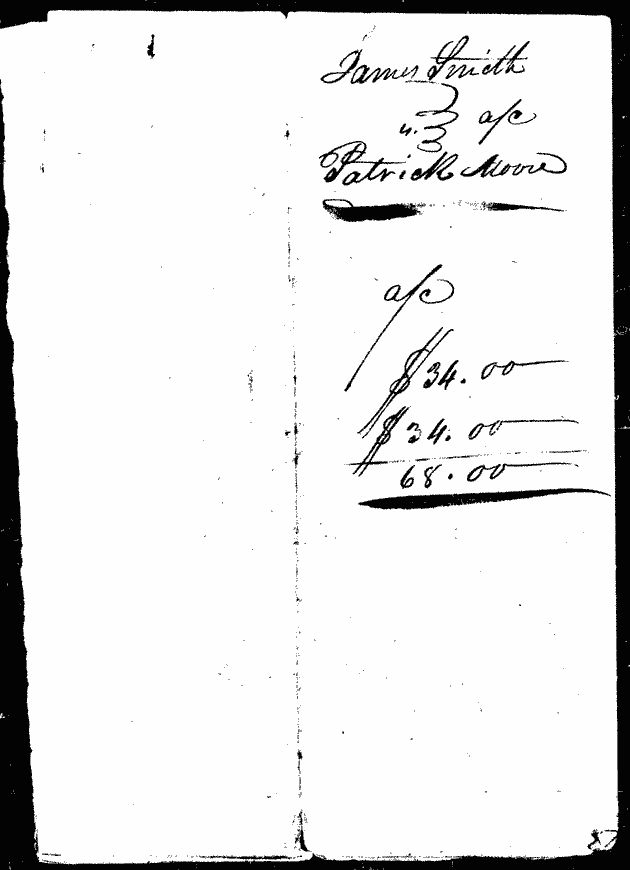 James Smith
v. } a/c
Patrick Moore
a/c
$34.00
$34.00
68.00